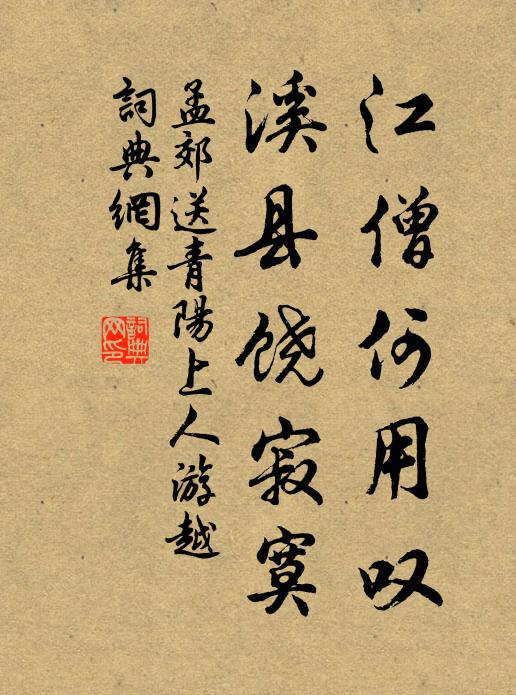 江僧何用叹
溪县饶寂寞
孟郊送青陽上人游越
詞典網集
詞典網印